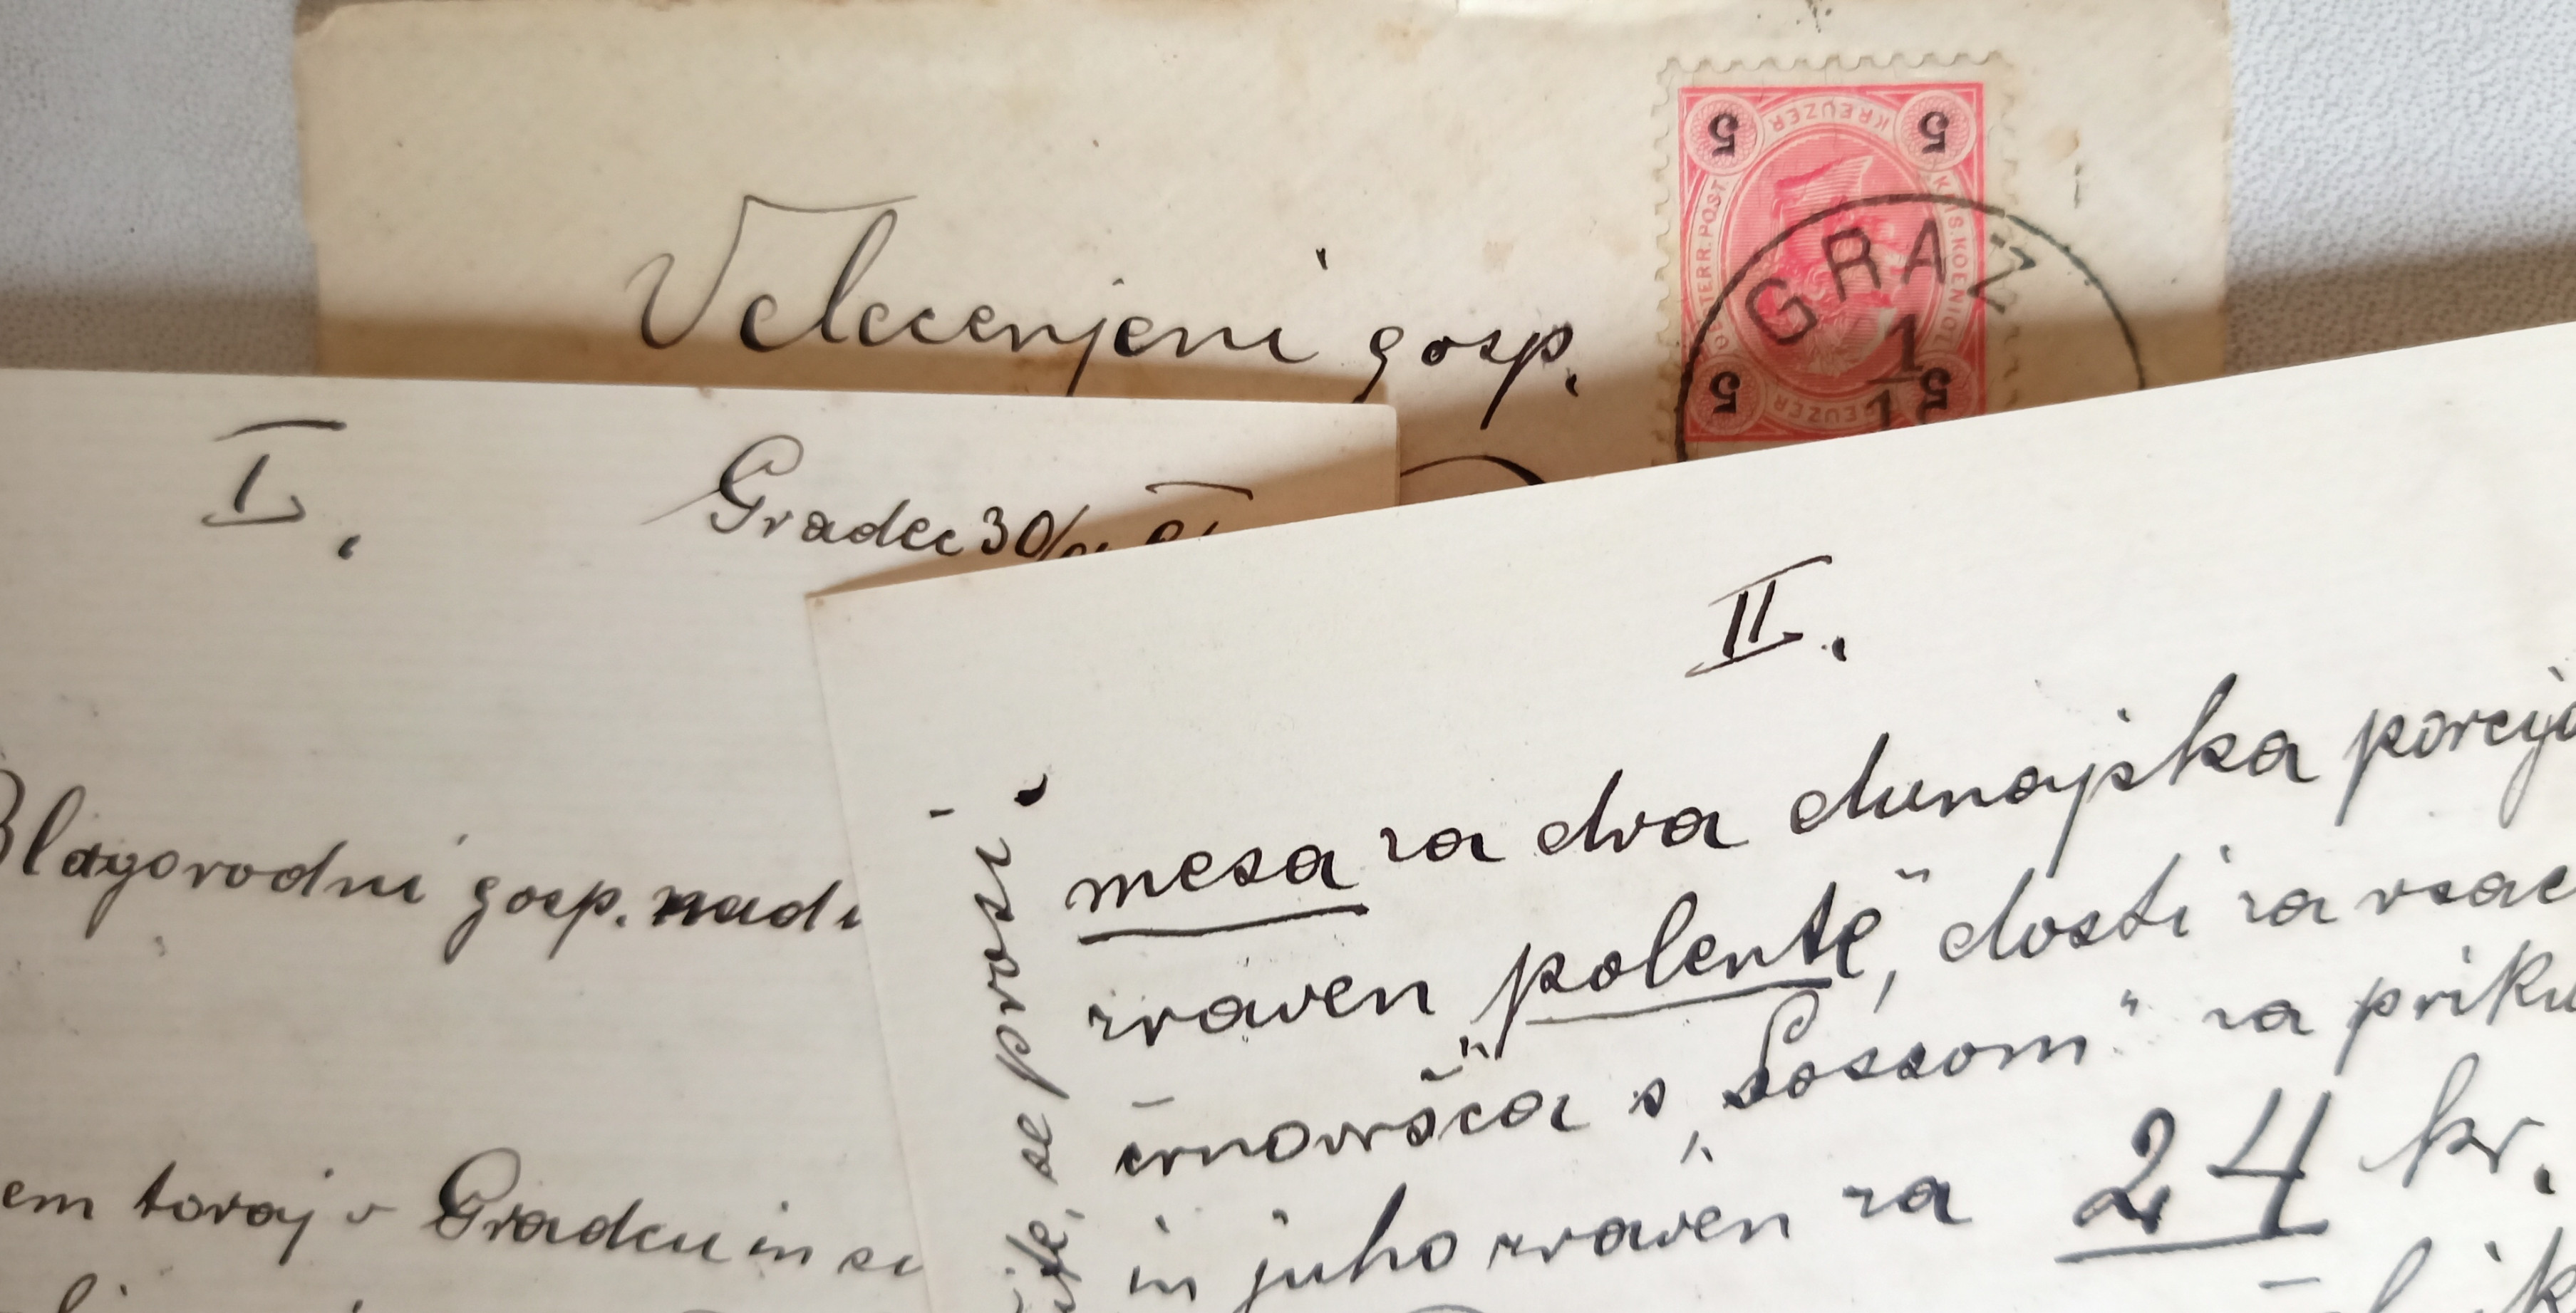 Velecenjeni gosp.
5 KREUZER 5
KAIS. KOENIGL. OESTERR. POST
5 KREUZER 5
GRAZ
1
I.
Gradec 30/
Blagorodni gosp.
em toraj v Gradcu in
II.
mesa za dva dunajska
zraven polente, dosti za vsac
črnovršca s „Sossom“ za
in juho zraven za 24 kr.
se prosi